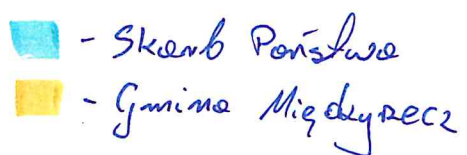 - Skarb Państwa
- Gmina Międzyrzecz